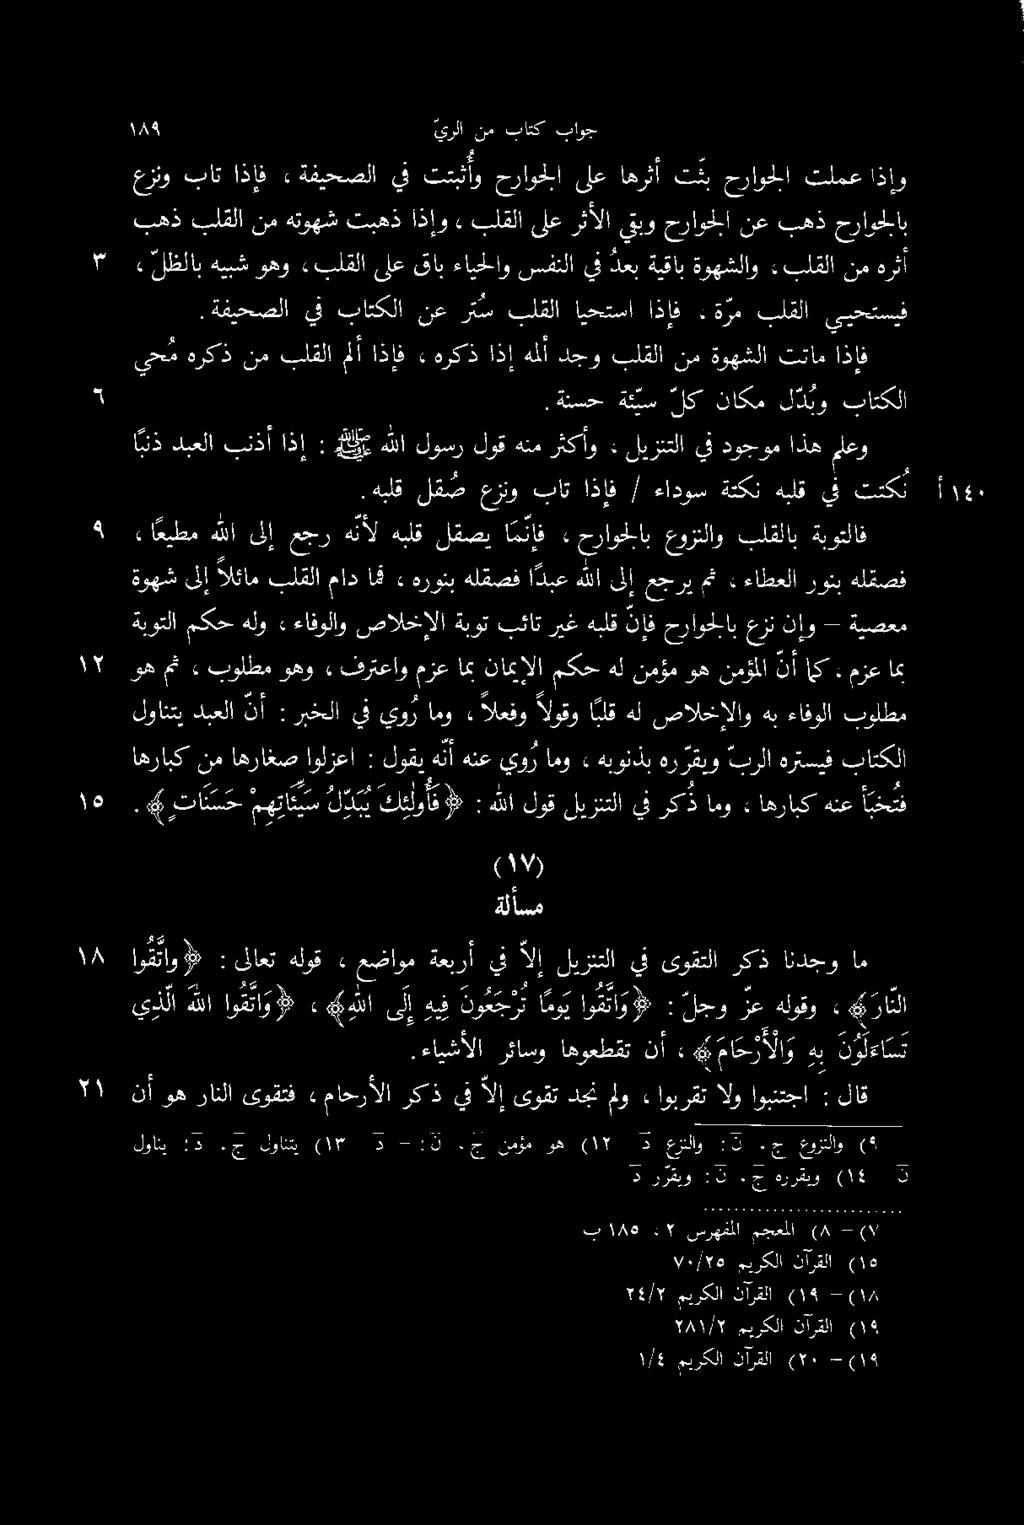 جواب كتاب من الريّ ١٨٩
وإذا عملت الجوارح بثّت أثرها على الجوارح وأُثبتت في الصحيفة ، فإذا تاب ونزع
بالجوارح ذهب عن الجوارح وبقي الأثر على القلب ، وإذا ذهبت شهوته من القلب ذهب
أثره من القلب ، والشهوة باقية بعدُ في النفس والحياء باق على القلب ، وهو شبيه بالظلّ ، ٣
فيستحيي القلب مرّة ، فإذا استحيا القلب سُتر عن الكتاب في الصحيفة .
فإذا ماتت الشهوة من القلب وجد ألمه إذا ذكره ، فإذا ألم القلب من ذكره مُحي
الكتاب وبُدّل مكان كلّ سيّئة حسنة . ٦
وعلم هذا موجود في التنزيل ، وأكثر منه قول رسول الله ﷺ : إذا أذنب العبد ذنبًا
نُكتت في قلبه نكتة سوداء / فإذا تاب ونزع صُقل قلبه . ١٤٠ أ
فالتوبة بالقلب والنزوع بالجوارح ، فإنّما يصقل قلبه لأنّه رجع إلى الله مطيعًا ، ٩
فصقله بنور العطاء ، ثم يرجع إلى الله عبدًا فصقله بنوره ، فما دام القلب مائلاً إلى شهوة
معصية – وإن نزع بالجوارح فإنّ قلبه غير تائب توبة الإخلاص والوفاء ، وله حكم التوبة
بما عزم ، كما أنّ المؤمن هو مؤمن له حكم الإيمان بما عزم واعترف ، وهو مطلوب ، ثم هو ١٢
مطلوب الوفاء به والإخلاص له قلبًا وقولاً وفعلاً ، وما رُوي في الخبر : أنّ العبد يتناول
الكتاب فيستره الربّ ويقرّره بذنوبه ، وما رُوي عنه أنّه يقول : اعزلوا صغارها من كبارها
فتُخبأ عنه كبارها ، وما ذُكر في التنزيل قول الله : ﴿فَأُولٰئِكَ يُبَدِّلُ سَيِّئَاتِهِمْ حَسَنَاتٍ﴾ . ١٥
(١٧)
مسألة
ما وجدنا ذكر التقوى في التنزيل إلاّ في أربعة مواضع ، قوله تعالى : ﴿واتَّقُوا ١٨
النَّارَ﴾ ، وقوله عزّ وجلّ : ﴿وَاتَّقُوا يَومًا تُرْجَعُونَ فِيهِ إِلَى اللهِ﴾ ، ﴿وَاتَّقُوا اللهَ الَّذِي
تَسَاءَلُونَ بِهِ وَالْأَرْحَامَ﴾ ، أن تقطعوها وسائر الأشياء .
قال : اجتنبوا ولا تقربوا ، ولم نجد تقوى إلاّ في ذكر الأرحام ، فتقوى النار هو أن ٢١
٩) والنزوع ج . ن : والنزع د ١٢) هو مؤمن ج . ن : – د ١٣) يتناول ج . د : يناول
ن ١٤) ويقرره ج . ن : ويقرّر د
٧) – ٨) المعجم المفهرس ٢ ، ١٨٥ ب
١٥) القرآن الكريم ٧٠/٢٥
١٨) – ١٩) القرآن الكريم ٢٤/٢
١٩) القرآن الكريم ٢٨١/٢
١٩) – ٢٠) القرآن الكريم ١/٤